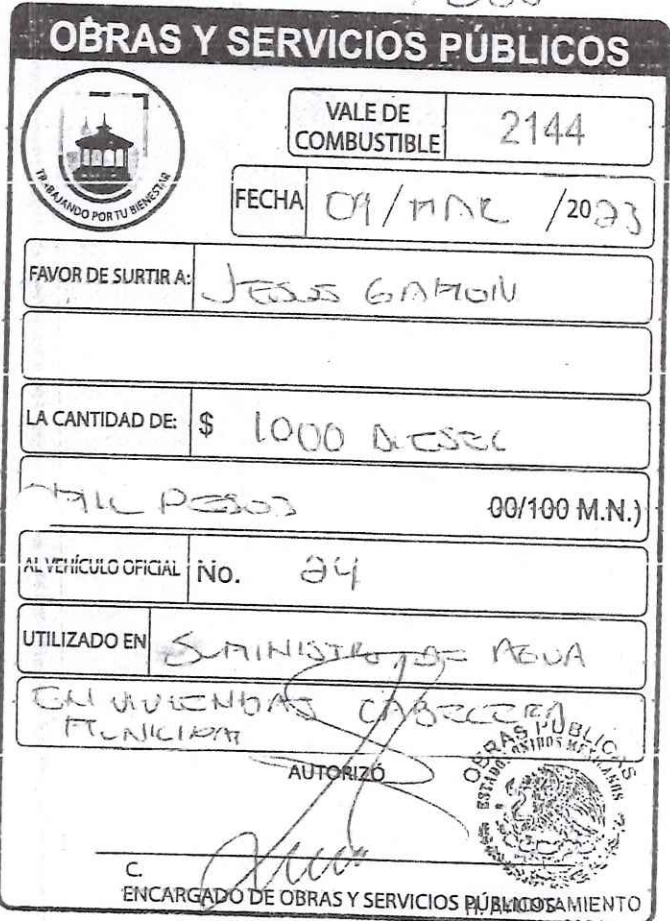 OBRAS Y SERVICIOS PÚBLICOS
TRABAJANDO POR TU BIENESTAR
VALE DE COMBUSTIBLE 2144
FECHA 09/MAR /2023
FAVOR DE SURTIR A: JESUS GAMON
LA CANTIDAD DE: $ 1000 DIESEL
MIL PESOS 00/100 M.N.)
AL VEHÍCULO OFICIAL No. 24
UTILIZADO EN SUMINISTRO DE AGUA
EN VIVIENDAS CABECERA
MUNICIPAL
AUTORIZÓ
OBRAS PUBLICAS
ESTADOS UNIDOS MEXICANOS
C.
ENCARGADO DE OBRAS Y SERVICIOS PÚBLICOS